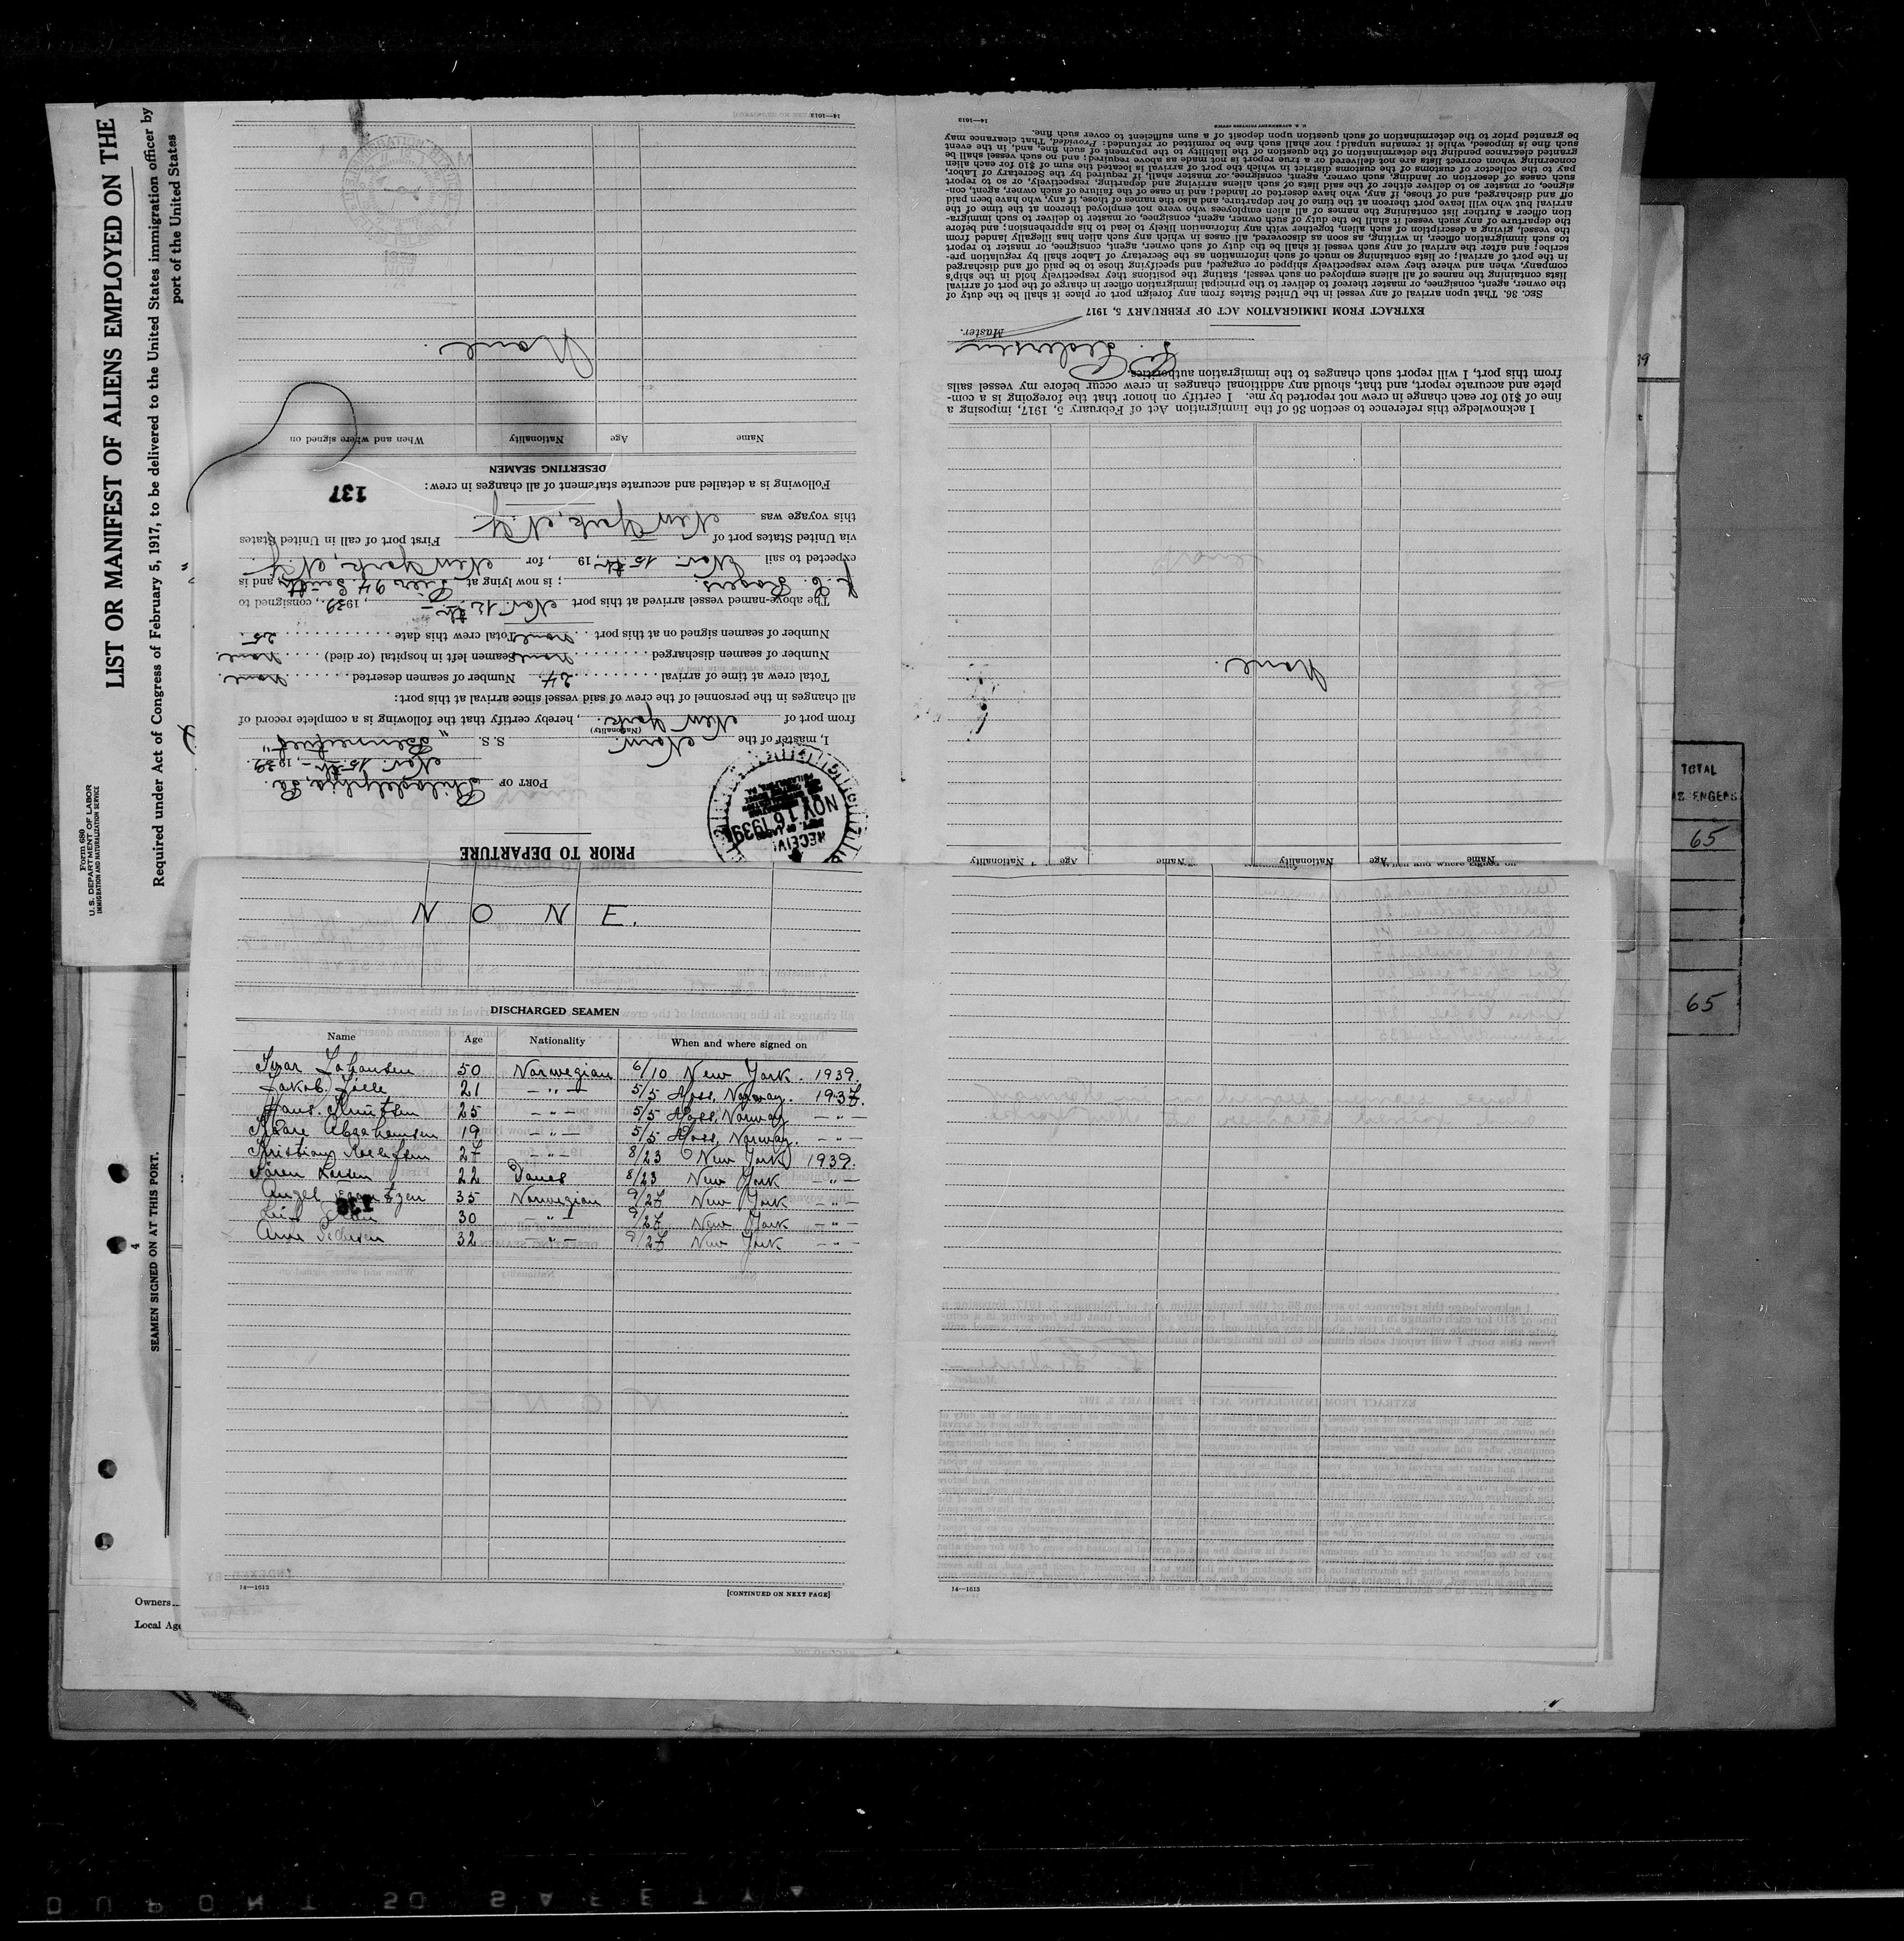 LIST OR MANIFEST OF ALIENS EMPLOYED ON THE
Required under Act of Congress of February 5, 1917, to be delivered to the United States immigration officer by
port of the United States
Form 680
U. S. DEPARTMENT OF LABOR
IMMIGRATION AND NATURALIZATION SERVICE
PRIOR TO DEPARTURE
PORT OF Philadelphia, Pa.
Nov. 15-th-, 1939.
I, master of the Norw. S. S. "Bennestvet"
(Nationality)
from port of New York., hereby certify that the following is a complete record of
all changes in the personnel of the crew of said vessel since arrival at this port:
Total crew at time of arrival 24 Number of seamen deserted None.
Number of seamen discharged None Seamen left in hospital (or died) None.
Number of seamen signed on at this port None Total crew this date 25
The above-named vessel arrived at this port Nov. 12-th-, 1939, consigned to
J. C. Rogers; is now lying at Pier 94 South and is
expected to sail Nov. 15-th, 19 , for New York, N.Y.
via United States port of First port of call in United States
this voyage was New York, N.Y.
Following is a detailed and accurate statement of all changes in crew:
137
DESERTING SEAMEN
Name Age Nationality When and where signed on
None.
14—1613
RECEIVED
NOV 16 1939
Name Age Nationality Name Age Nationality
None.
I acknowledge this reference to section 36 of the Immigration Act of February 5, 1917, imposing a
fine of $10 for each change in crew not reported by me. I certify on honor that the foregoing is a com-
plete and accurate report, and that, should any additional changes in crew occur before my vessel sails
from this port, I will report such changes to the immigration authorities.
Pedersen
Master.
EXTRACT FROM IMMIGRATION ACT OF FEBRUARY 5, 1917
SEC. 36. That upon arrival of any vessel in the United States from any foreign port or place it shall be the duty of
the owner, agent, consignee, or master thereof to deliver to the principal immigration officer in charge of the port of arrival
lists containing the names of all aliens employed on such vessel, stating the positions they respectively hold in the ship's
company, when and where they were respectively shipped or engaged, and specifying those to be paid off and discharged
in the port of arrival; or lists containing so much of such information as the Secretary of Labor shall by regulation pre-
scribe; and after the arrival of any such vessel it shall be the duty of such owner, agent, consignee, or master to report
to such immigration officer, in writing, as soon as discovered, all cases in which any such alien has illegally landed from
the vessel, giving a description of such alien, together with any information likely to lead to his apprehension; and before
the departure of any such vessel it shall be the duty of such owner, agent, consignee, or master to deliver to such immigra-
tion officer a further list containing the names of all alien employees who were not employed thereon at the time of the
arrival but who will leave port thereon at the time of her departure, and also the names of those, if any, who have been paid
off and discharged, and of those, if any, who have deserted or landed; and in case of the failure of such owner, agent, con-
signee, or master so to deliver either of the said lists of such aliens arriving and departing, respectively, or so to report
such cases of desertion or landing, such owner, agent, consignee, or master shall, if required by the Secretary of Labor,
pay to the collector of customs of the customs district in which the port of arrival is located the sum of $10 for each alien
concerning whom correct lists are not delivered or a true report is not made as above required; and no such vessel shall be
granted clearance pending the determination of the question of the liability to the payment of such fine, and, in the event
such fine is imposed, while it remains unpaid; nor shall such fine be remitted or refunded: Provided, That clearance may
be granted prior to the determination of such question upon deposit of a sum sufficient to cover such fine.
14—1613
TOTAL
65
65
N O N E.
DISCHARGED SEAMEN
Name Age Nationality When and where signed on
Ivar Johansen 50 Norwegian 6/10 New York. 1939.
Jakob 21 — " — 5/5 Moss, Norway. 1937.
Hans Knutsen 25 — " — 5/5 Moss, Norway — " —
Kåre Abrahamsen 19 — " — 5/5 Moss, Norway. — " —
Kristian Rolefsen 27 — " — 8/23 New York 1939.
Søren Larsen 22 Danes 8/23 New York — " —
35 Norwegian 9/27 New York — " —
30 — " — 9/27 New York — " —
Arne Pedersen 32 — " — 9/27 New York — " —
14—1613
[CONTINUED ON NEXT PAGE]
14—1613
SEAMEN SIGNED ON AT THIS PORT.
4
Owners
Local Age
DUPONT 50 SAFETY